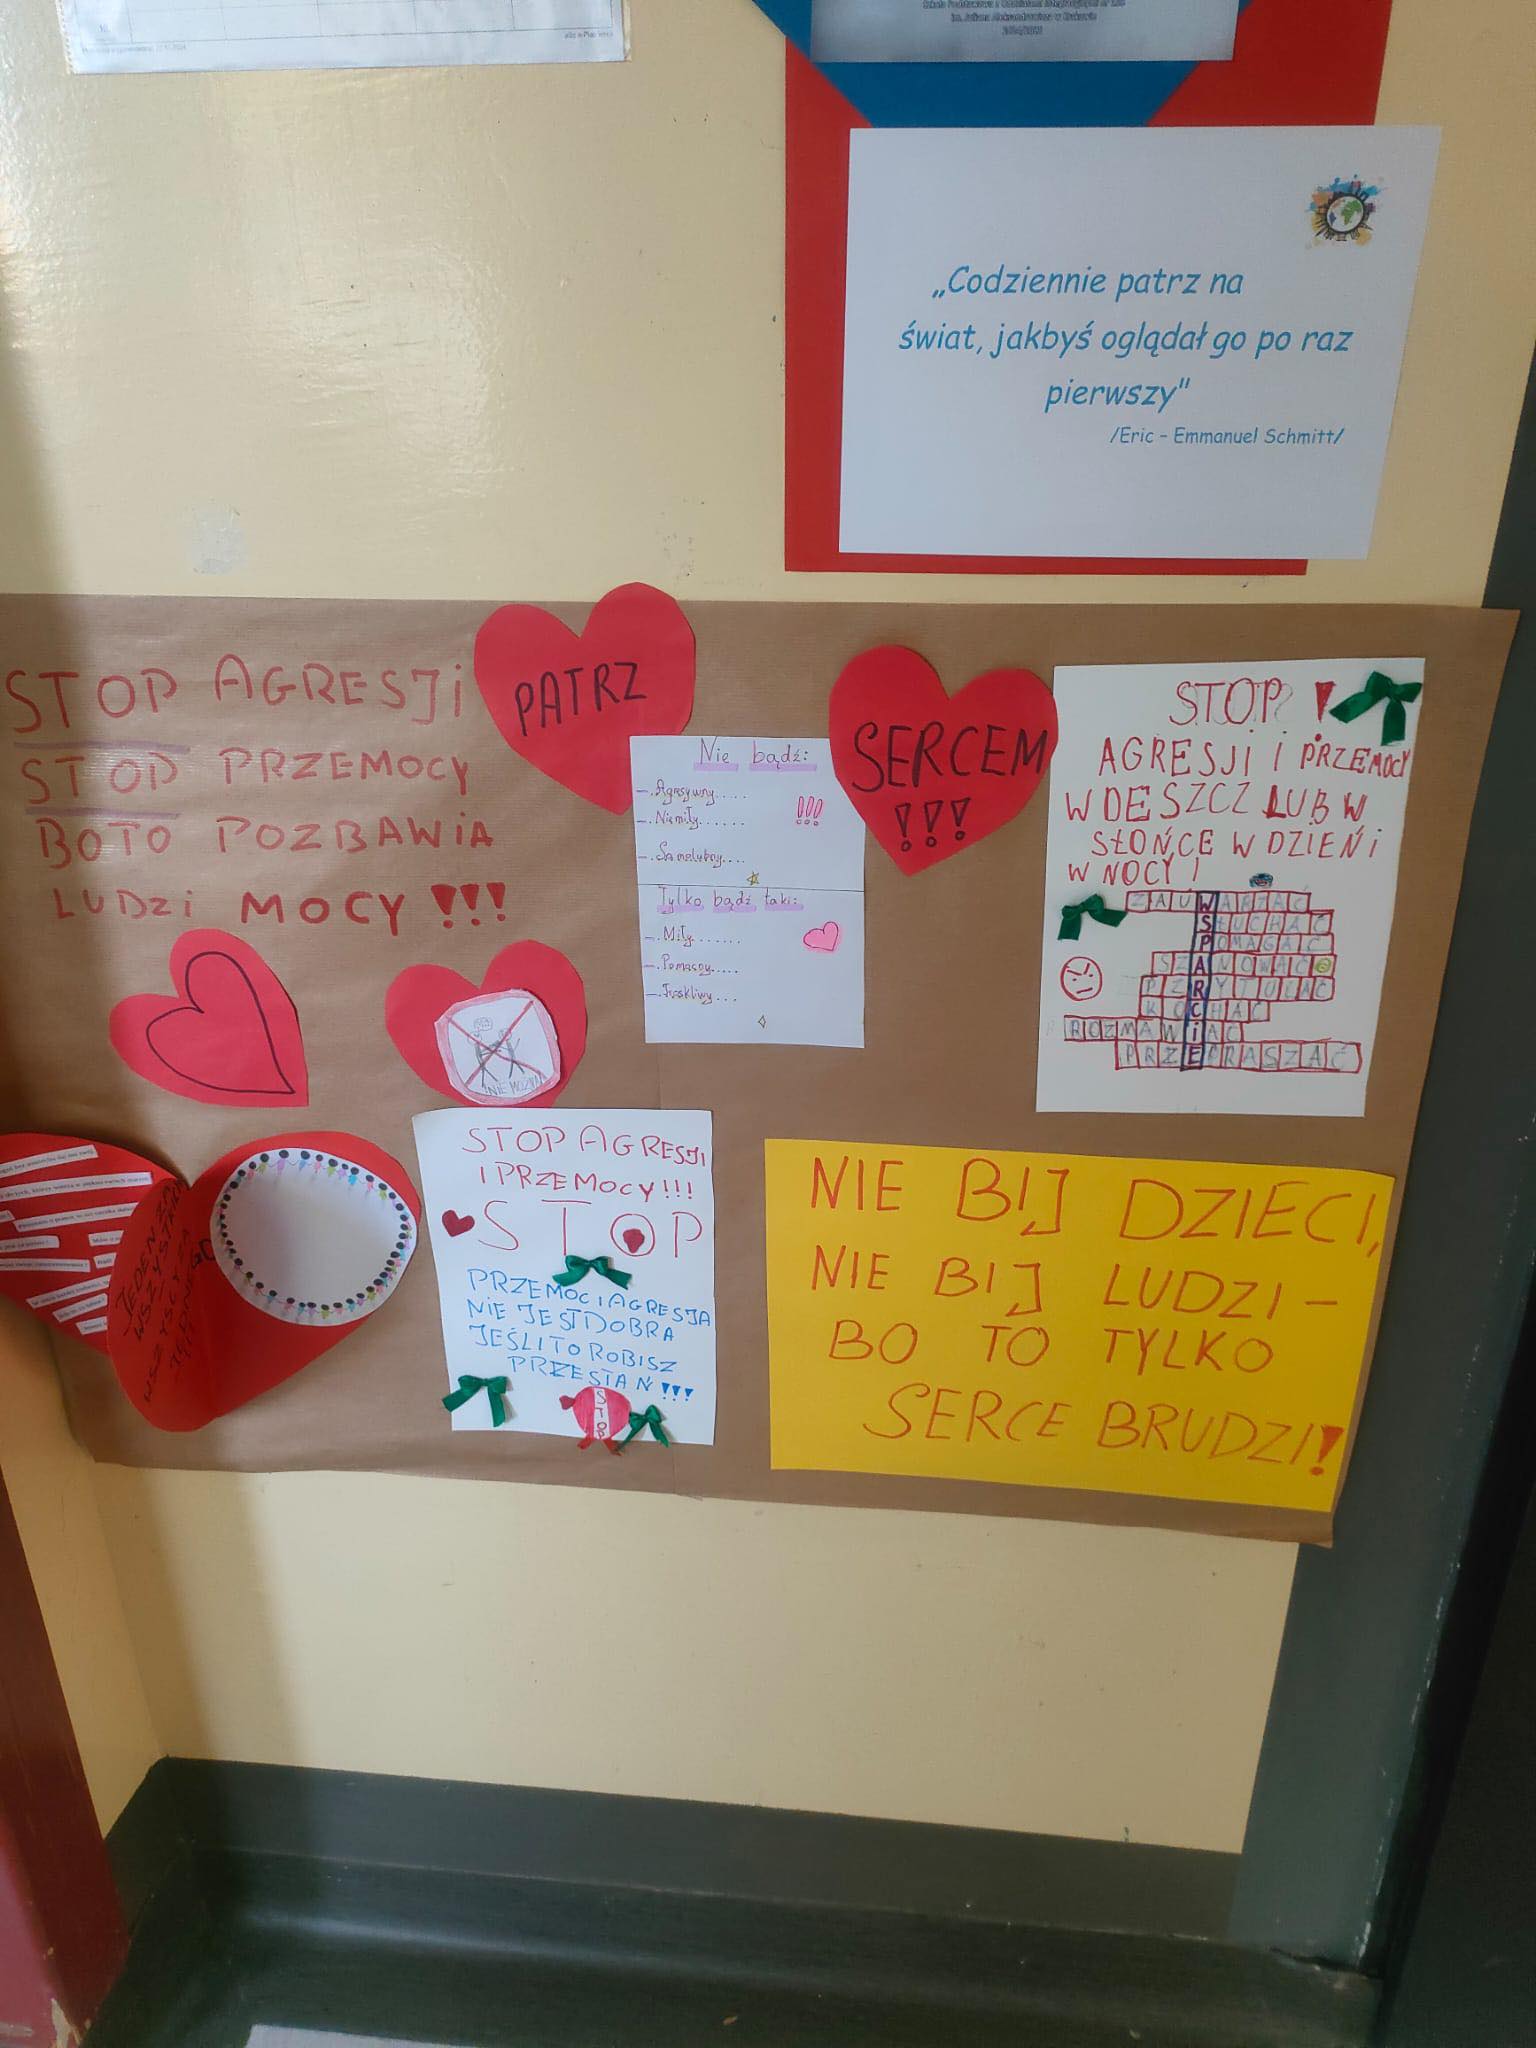 im. Juliana Aleksandrowicza w Krakowie
„Codziennie patrz na
świat, jakbyś oglądał go po raz
pierwszy"
/Eric - Emmanuel Schmitt/
STOP AGRESJi
STOP PRZEMOCY
BO TO POZBAWiA
LUDZi MOCY !!!
PATRZ
SERCEM
!!!
Nie bądź:
- Agresywny.....
- Niemiły......
- Samolubny....
!!!
Tylko bądź taki:
- Miły.......
- Pomocny.....
- Troskliwy...
STOP !
AGRESJI i PRZEMOCY
W DESZCZ LUB W
SŁOŃCE W DZIEŃ i
W NOCY !
ZAUWAŻAĆ
SŁUCHAĆ
POMAGAĆ
SZANOWAĆ
PRZYTULAĆ
KOCHAĆ
ROZMAWIAĆ
PRZEPRASZAĆ
STOP AGRESJI
I PRZEMOCY!!!
STOP
PRZEMOC I AGRESJA
NIE JEST DOBRA
JEŚLI TO ROBISZ
PRZESTAŃ!!!
STOP
JEDEN ZA
WSZYSTKICH
WSZYSCY ZA
JEDNEGO
NIE BIJ DZIECI,
NIE BIJ LUDZI -
BO TO TYLKO
SERCE BRUDZI!